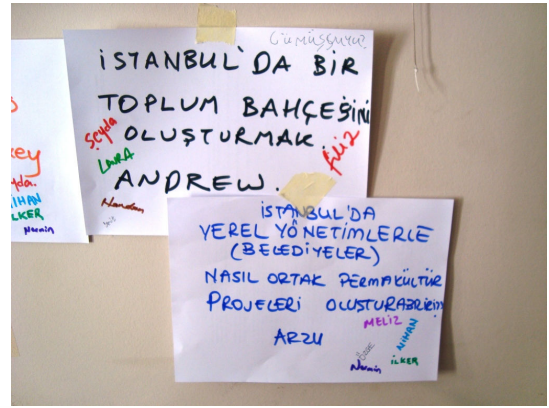 key
yda.
NİHAN
İLKER
Nermin
İSTANBUL'DA BİR
TOPLUM BAHÇESİNİ
OLUŞTURMAK.
ANDREW.
Şeyda
LARA
Handan
Filiz
İSTANBUL'DA
YEREL YÖNETİMLERLE
(BELEDİYELER)
NASIL ORTAK PERMAKÜLTÜR
PROJELERİ OLUŞTURABİLİRİM
ARZU
MELİZ
NİHAN
İLKER
Nermin